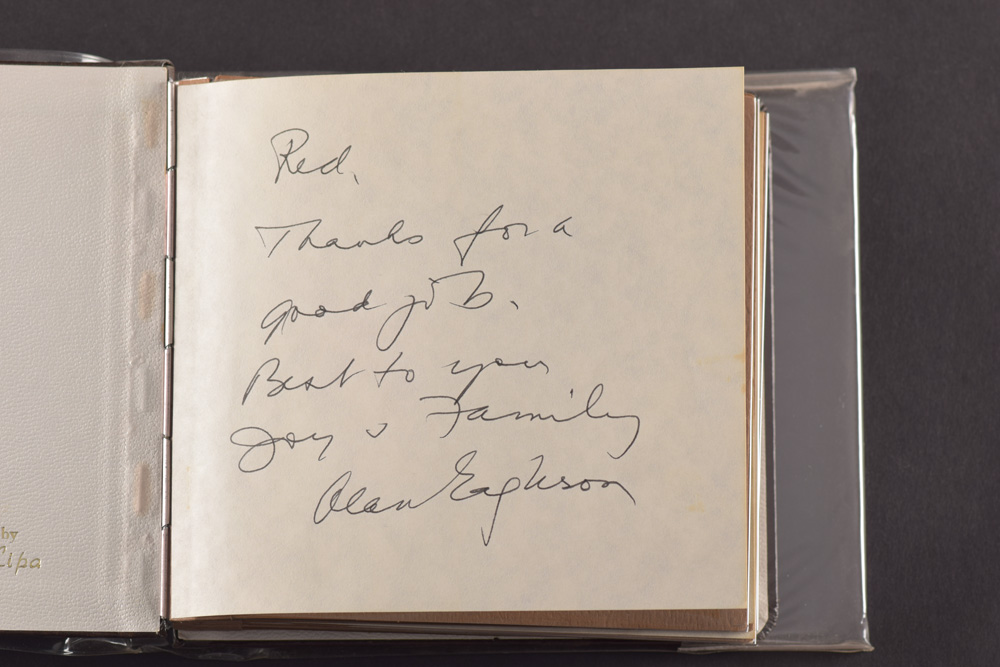 by
Red,
Thanks for a
good job.
Best to you
Joy & Family
Alan Eagleson